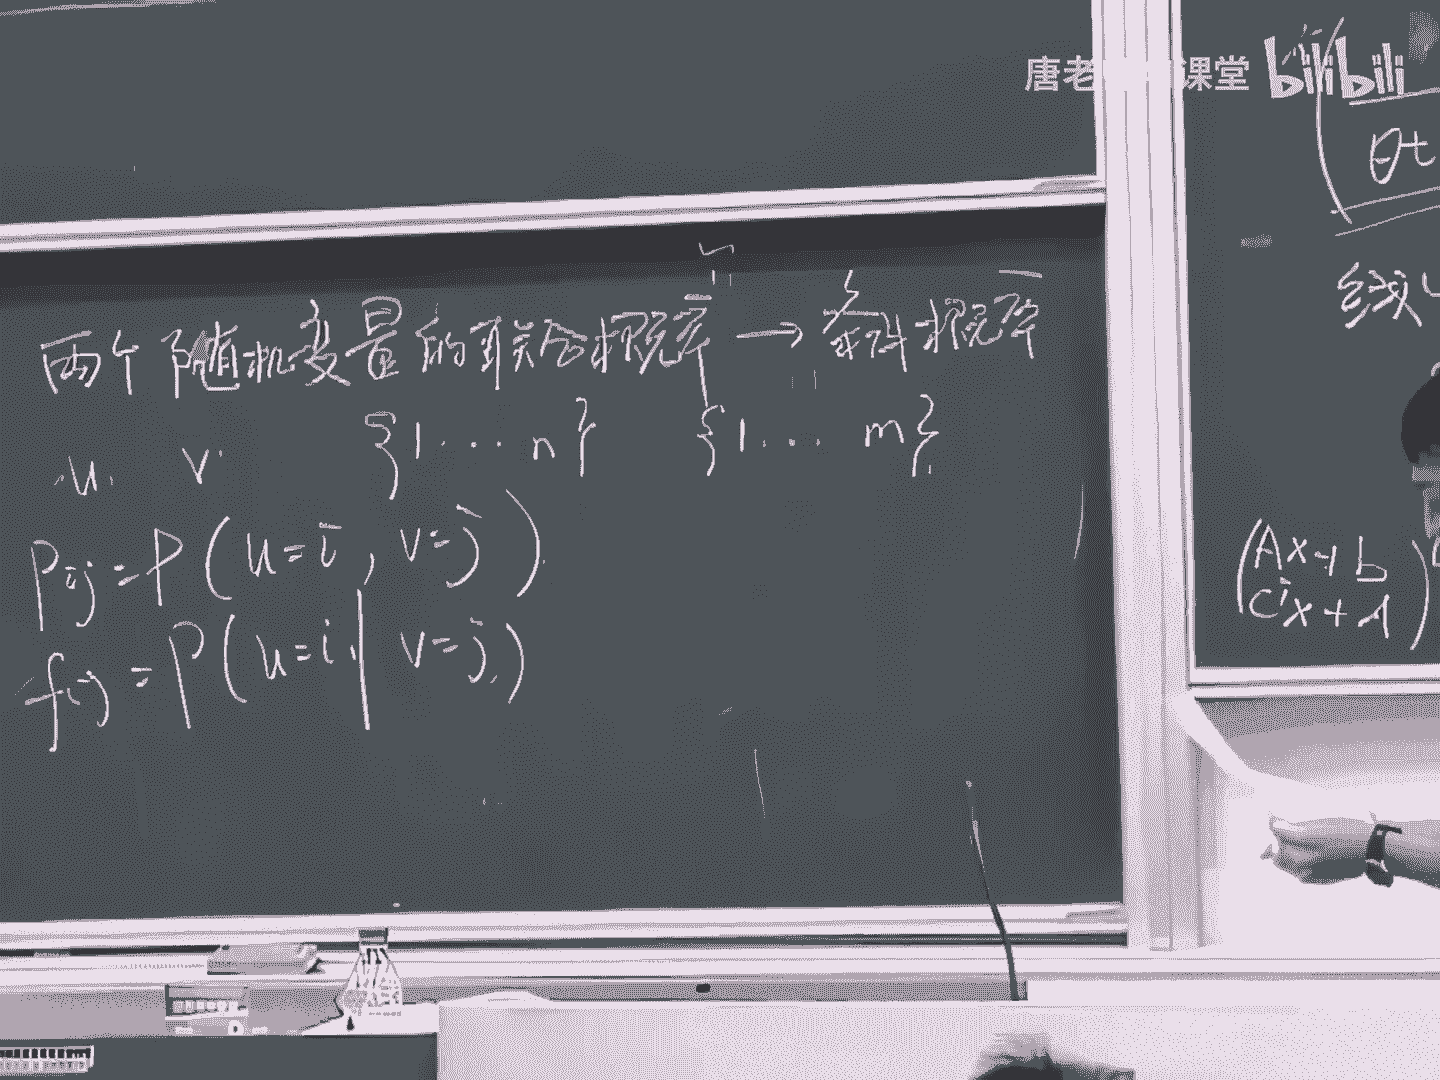 唐老 课堂 bilibili
两个随机变量的联合概率 → 条件概率
u. v. {1 ... n} {1 ... m}
Pij = P(u=i, v=j)
fij = P(u=i | v=j)
θt
线
(Ax+b
cᵀx+d)